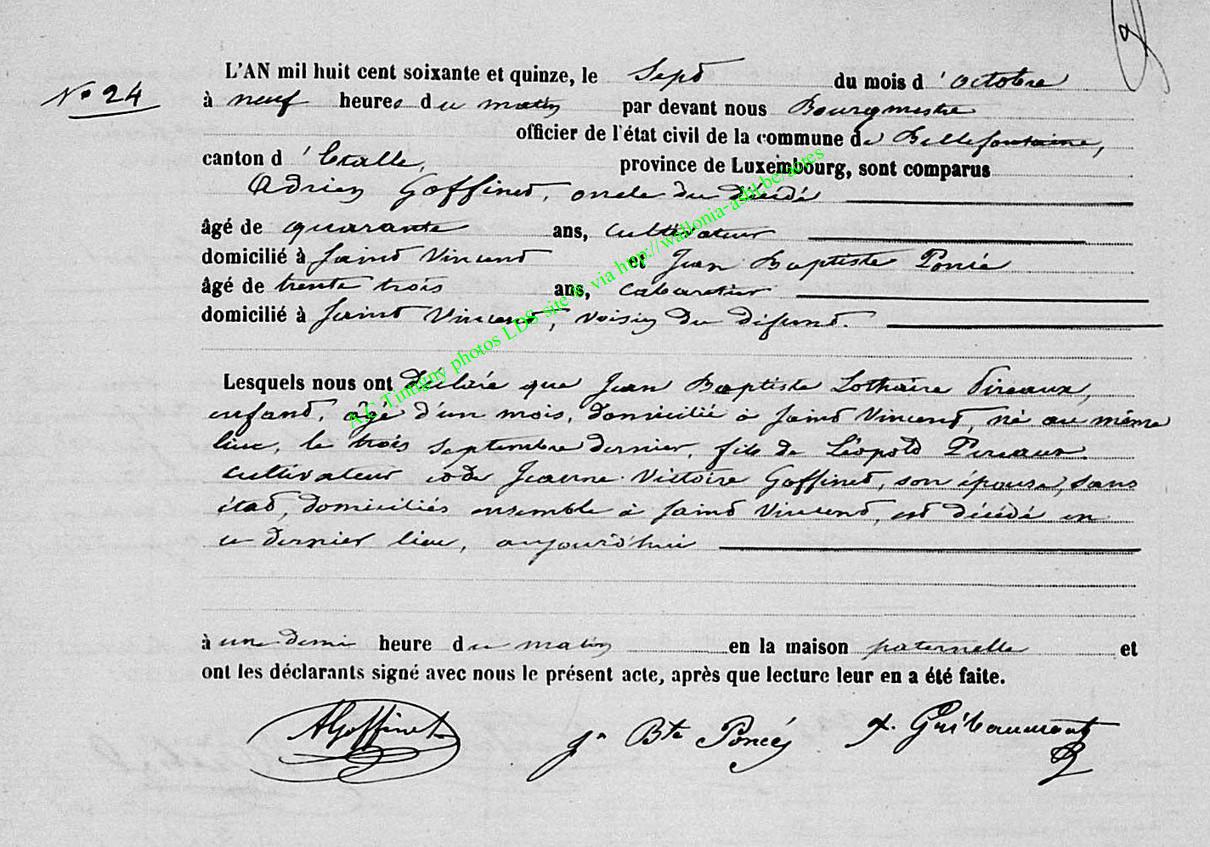 L'AN mil huit cent soixante et quinze, le Sept du mois d'octobre
N° 24
à neuf heures du matin par devant nous Bourgmestre
officier de l'état civil de la commune de Bellefontaine,
canton d'Etalle, province de Luxembourg, sont comparus
Adrien Goffinet, oncle du décédé
âgé de quarante ans, cultivateur
domicilié à Saint Vincent et Jean Baptiste Poncé
âgé de trente trois ans, cabaretier
domicilié à Saint Vincent, voisin du défunt.
Lesquels nous ont déclaré que Jean Baptiste Lothaire Pireaux,
enfant, âgé d'un mois, domicilié à Saint Vincent, né au même
lieu, le trois septembre dernier, fils de Léopold Pireaux
cultivateur et de Jeanne Victoire Goffinet, son épouse, sans
état, domiciliés ensemble à Saint Vincent, est décédé en
ce dernier lieu, aujourd'hui
à une demi heure du matin en la maison paternelle et
ont les déclarants signé avec nous le présent acte, après que lecture leur en a été faite.
AGoffinet Jn Bte Poncé
photos LDS site via http://wallonia-asbl.be/actes